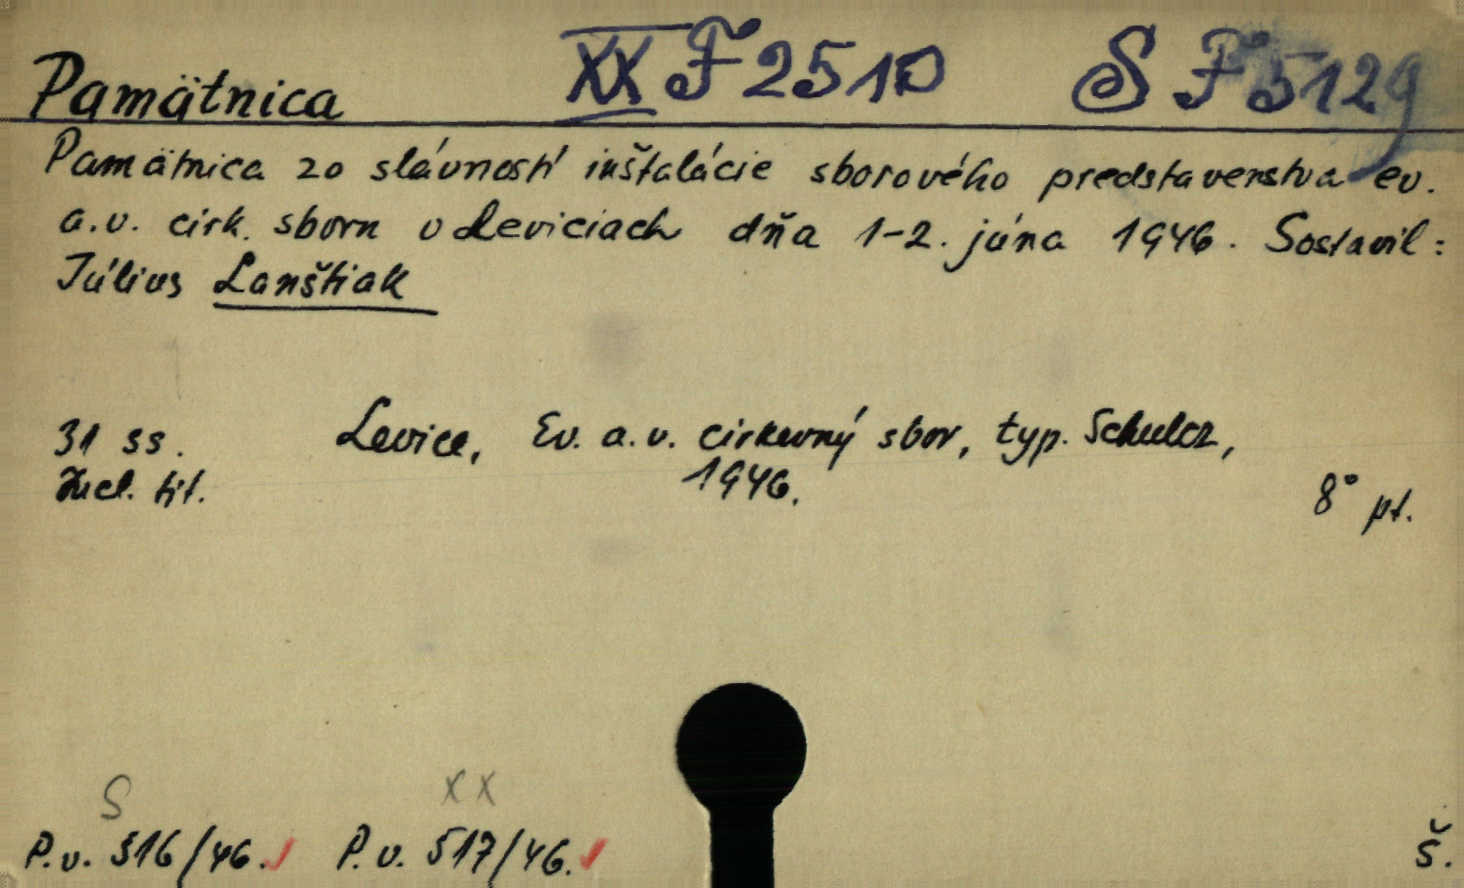 Pamätnica XX F 2510 S F 5129
Pamätnica zo slávností inštalácie sborového predstavenstva ev.
a.v. cirk. sboru v Leviciach dňa 1-2. júna 1946. Sostavil:
Július Lanštiak
31 ss. Levice, Ev. a. v. cirkevný sbor, typ. Schulcz,
Incl. tit. 1946. 8° pt.
S XX
P.v. 516/46. P.v. 517/46. Š.